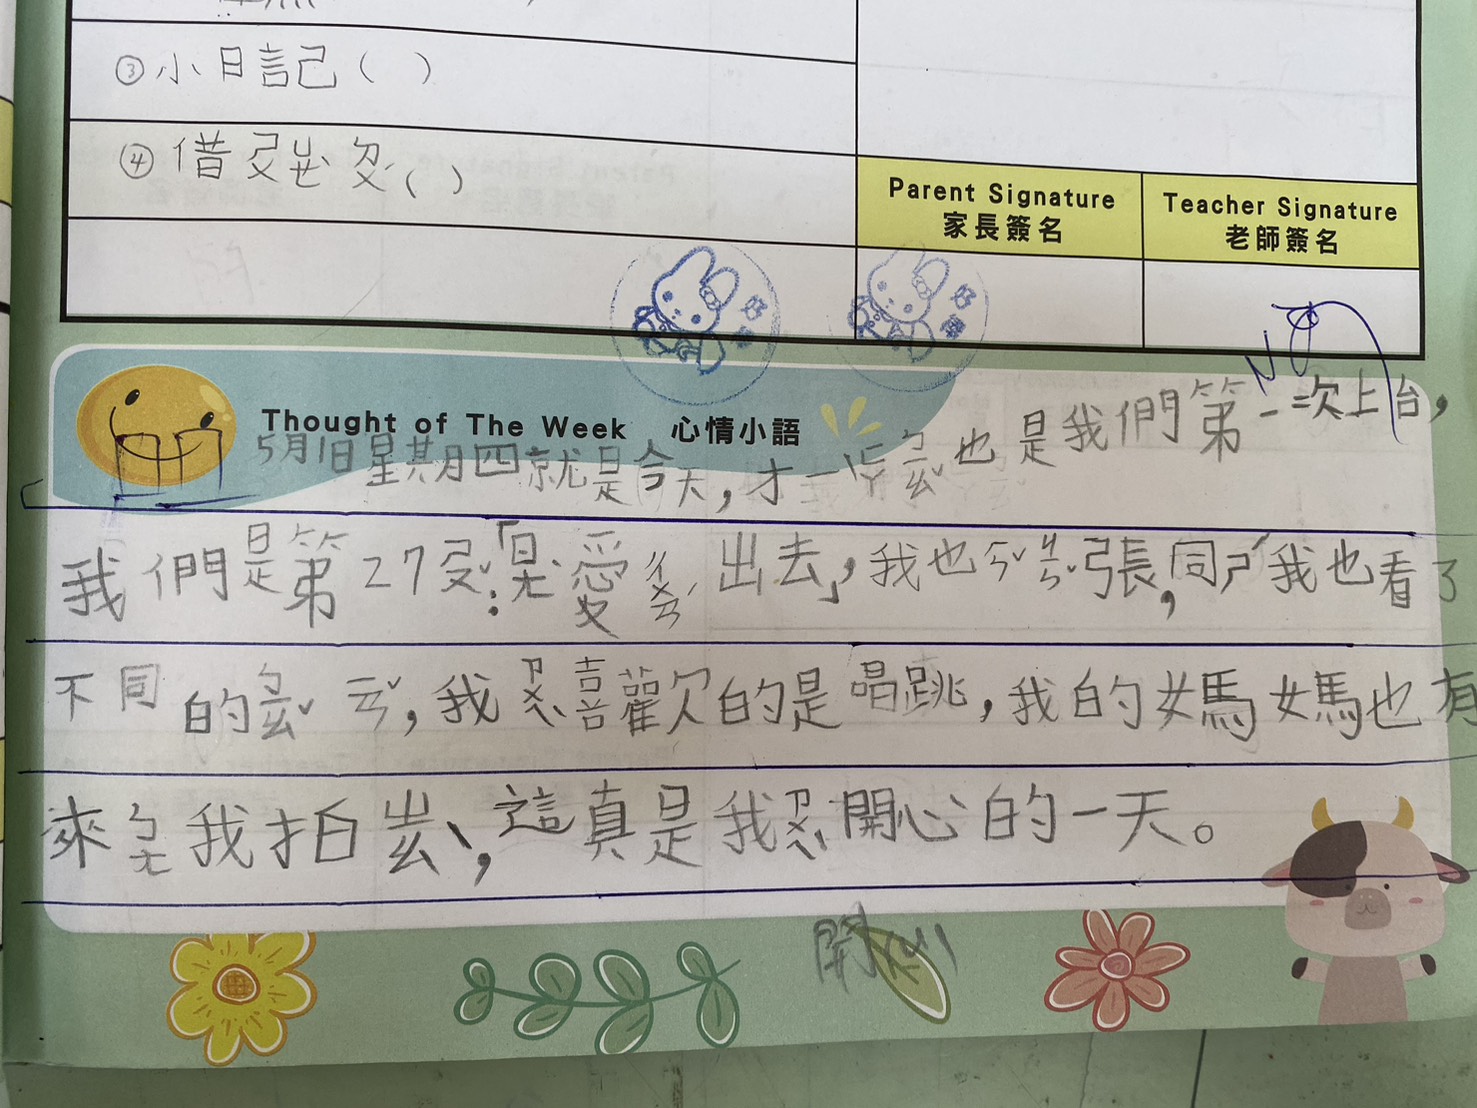 ③小日記( )
④借
Parent Signature
家長簽名
Teacher Signature
老師簽名
好棒
好棒
Thought of The Week 心情小語
5月1日星期四就是今天,才一ㄧㄚˊㄠˇ也是我們第一次上台,
我們是第27:「是愛ㄔㄨㄢˊ出去」,我也ㄢˇㄐㄧㄣˇ張,同ㄕˊ我也看了
不同的ㄅㄧㄠˇㄧㄢˇ,我ㄗㄨㄟˋ喜歡的是唱跳,我的媽媽也有
來ㄅㄤ我拍ㄓㄠˋ,這真是我ㄗㄨㄟˋ開心的一天。
開心